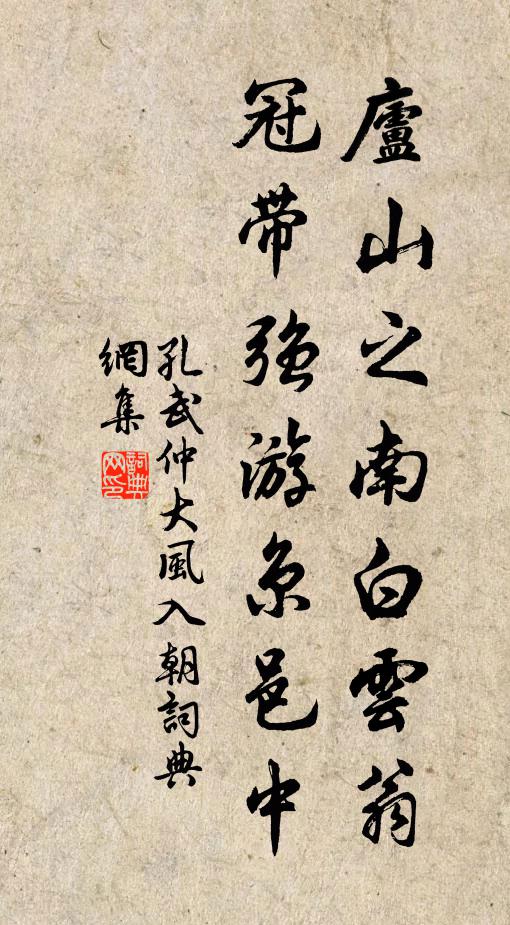 廬山之南白雲翁
冠帶強游京邑中
孔武仲大風入朝詞典
網集
詞典網印